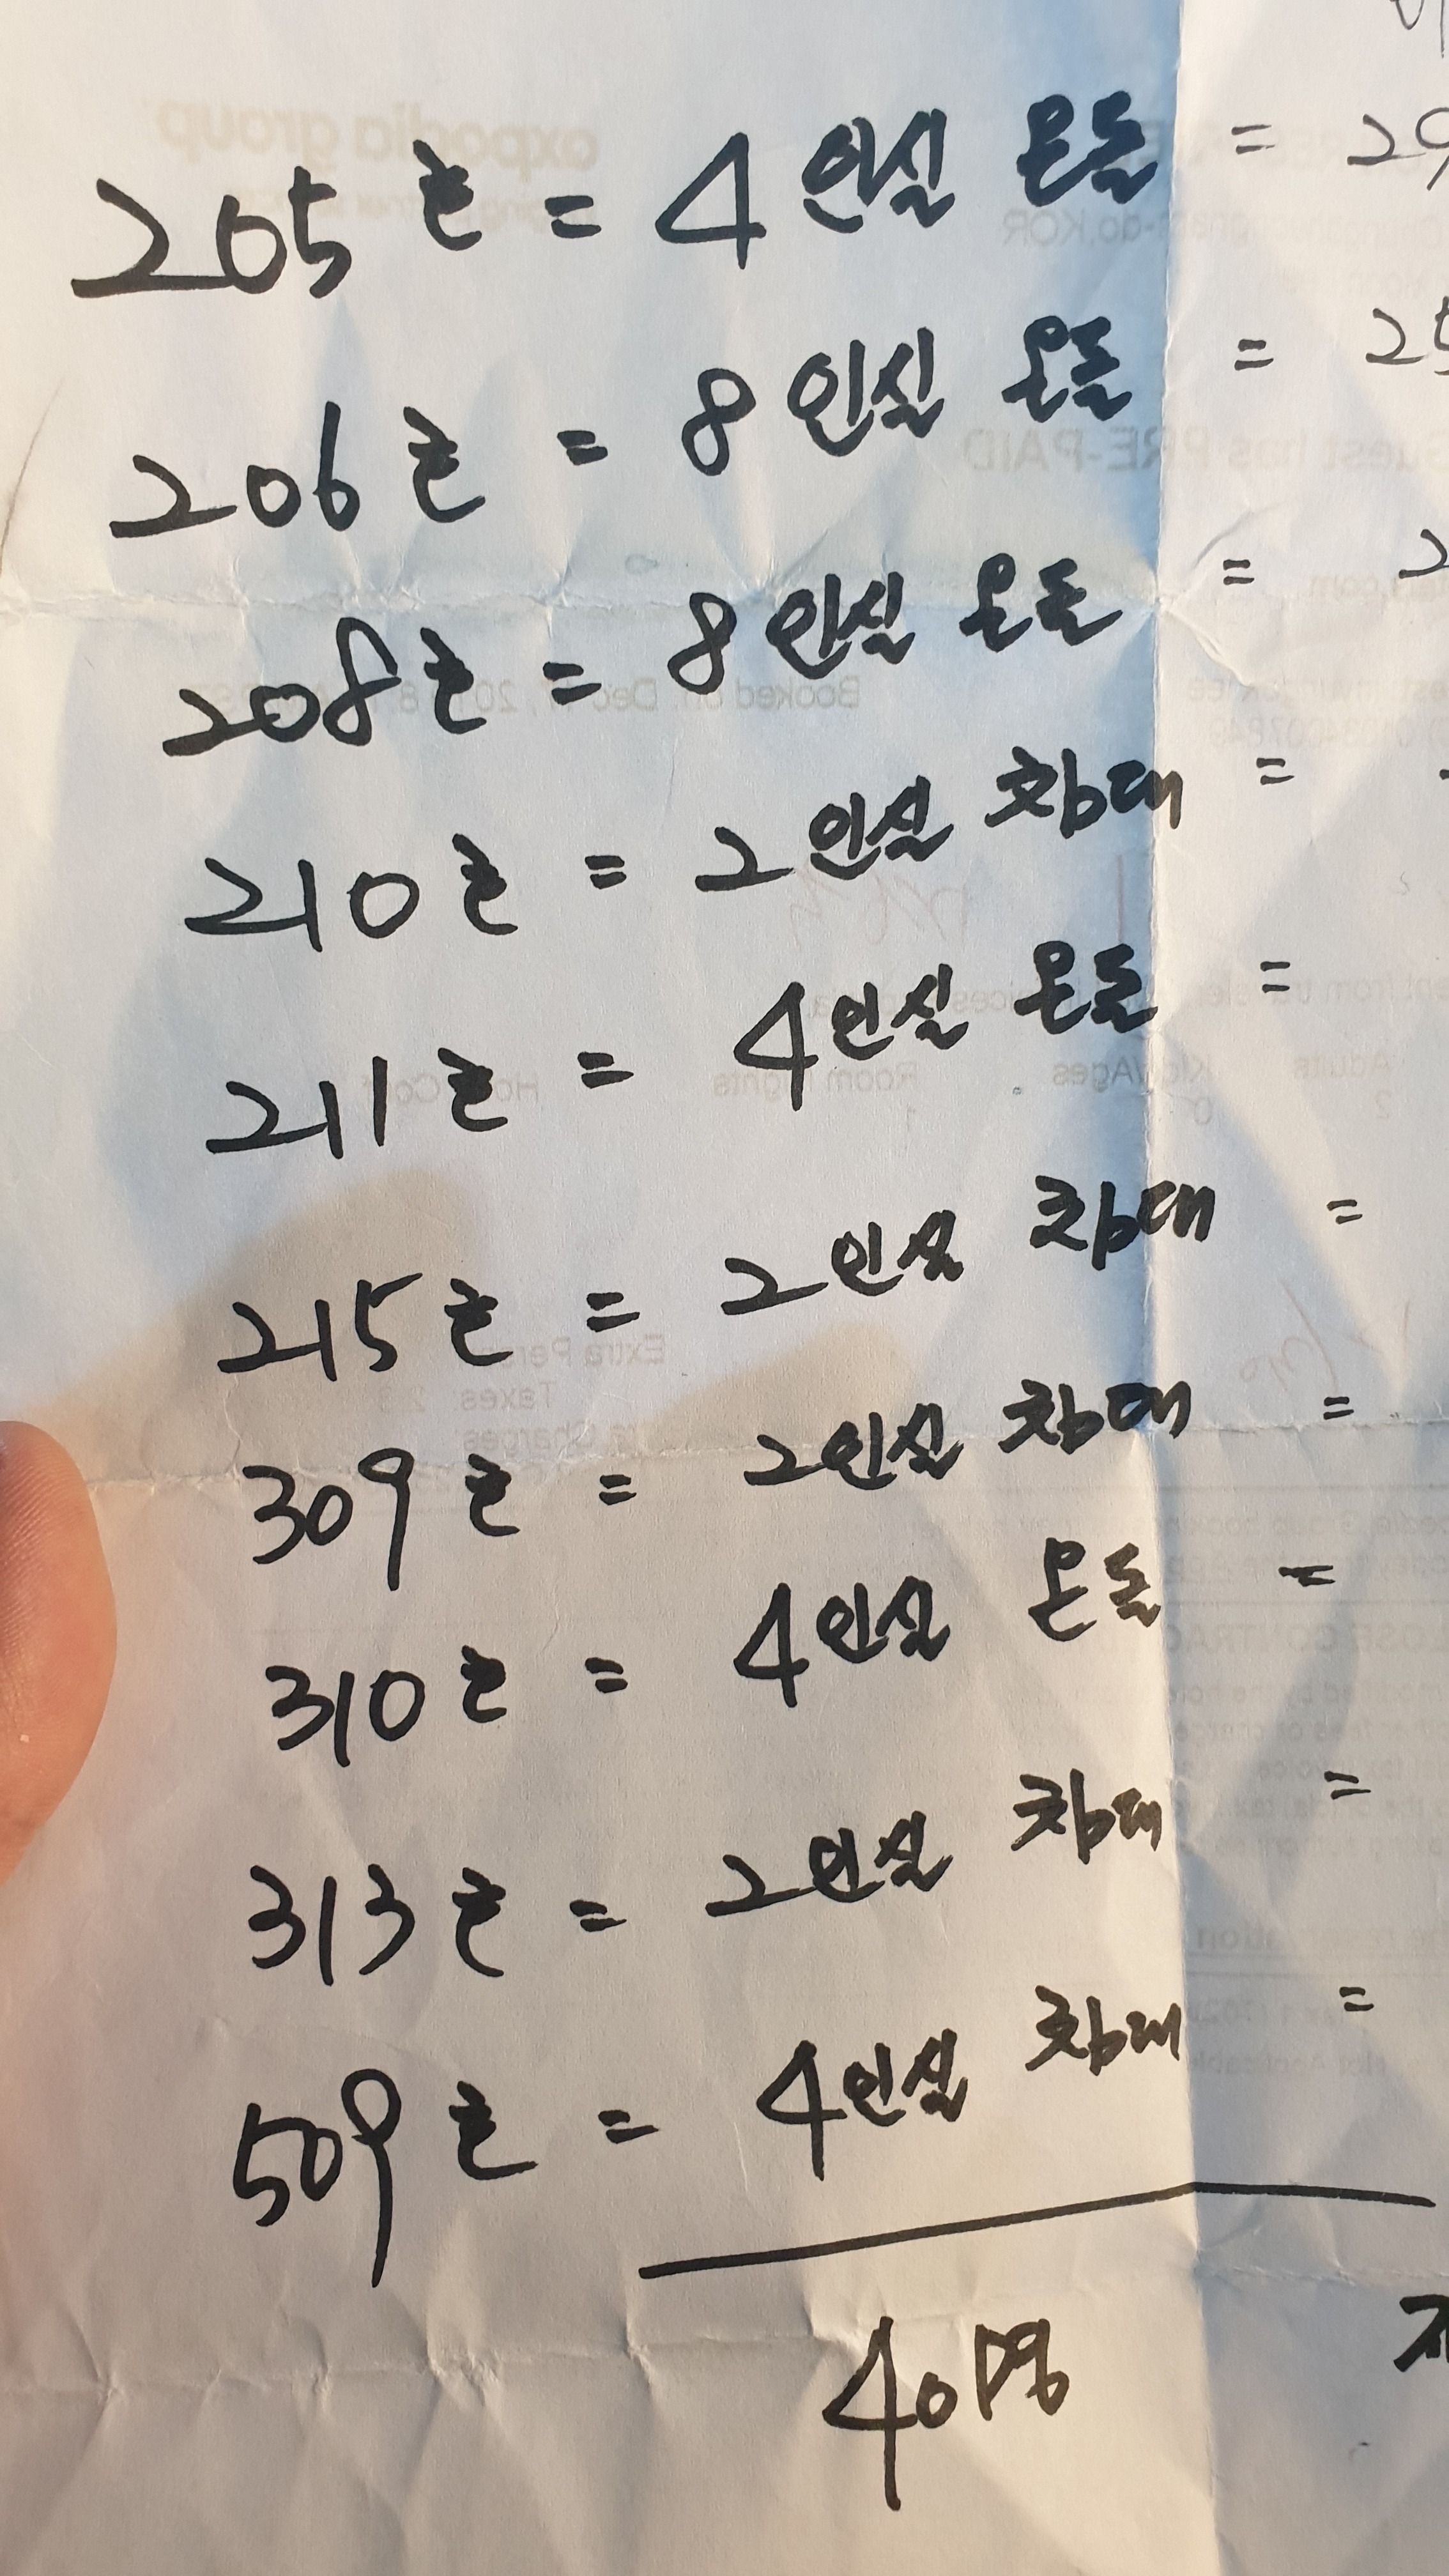 205호 = 4인실 온돌 = 29
206호 = 8인실 온돌 = 25
208호 = 8인실 온돌 = 2
210호 = 2인실 침대 =
211호 = 4인실 온돌 =
215호 = 2인실 침대 =
309호 = 2인실 침대 =
310호 = 4인실 온돌 =
313호 = 2인실 침대 =
509호 = 4인실 침대 =
40명